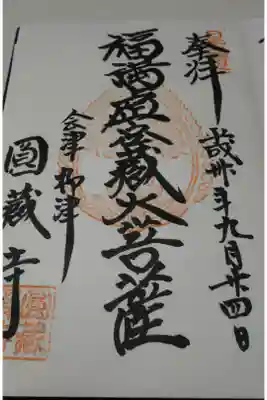 奉拝
平成卅年九月廿四日
福満虚空蔵大菩薩
会津柳津
圓蔵寺